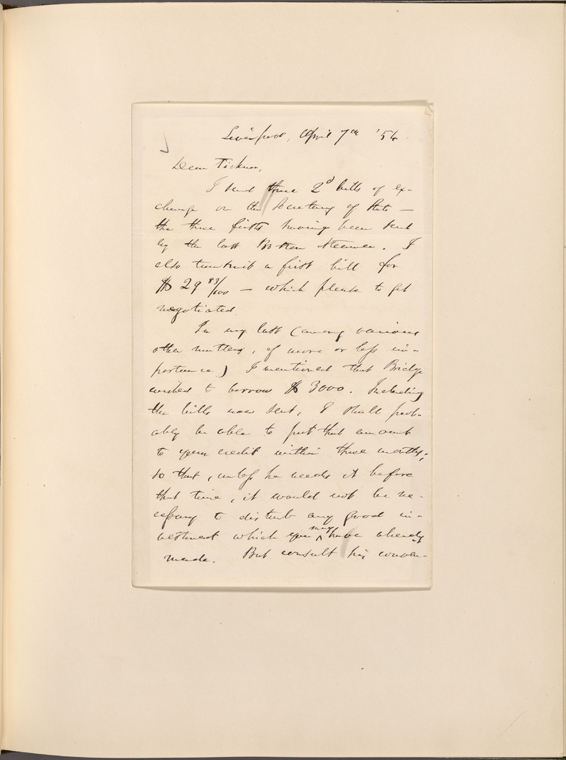 Liverpool, April 7th '54
Dear Ticknor,
I send three 2d bills of ex-
change on the Secretary of State —
the three firsts having been sent
by the last Boston steamer. I
also transmit a first bill for
$ 29 83/100 — which please to get
negotiated
In my last (among various
other matters, of more or less im-
portance) I mentioned that Bridge
wished to borrow $ 3000. Including
the bills now sent, I shall prob-
ably be able to put that amount
to your credit within three months;
so that, unless he needs it before
that time, it would not be ne-
cessary to disturb any good in-
vestment which you may have already
made. But consult his conven-